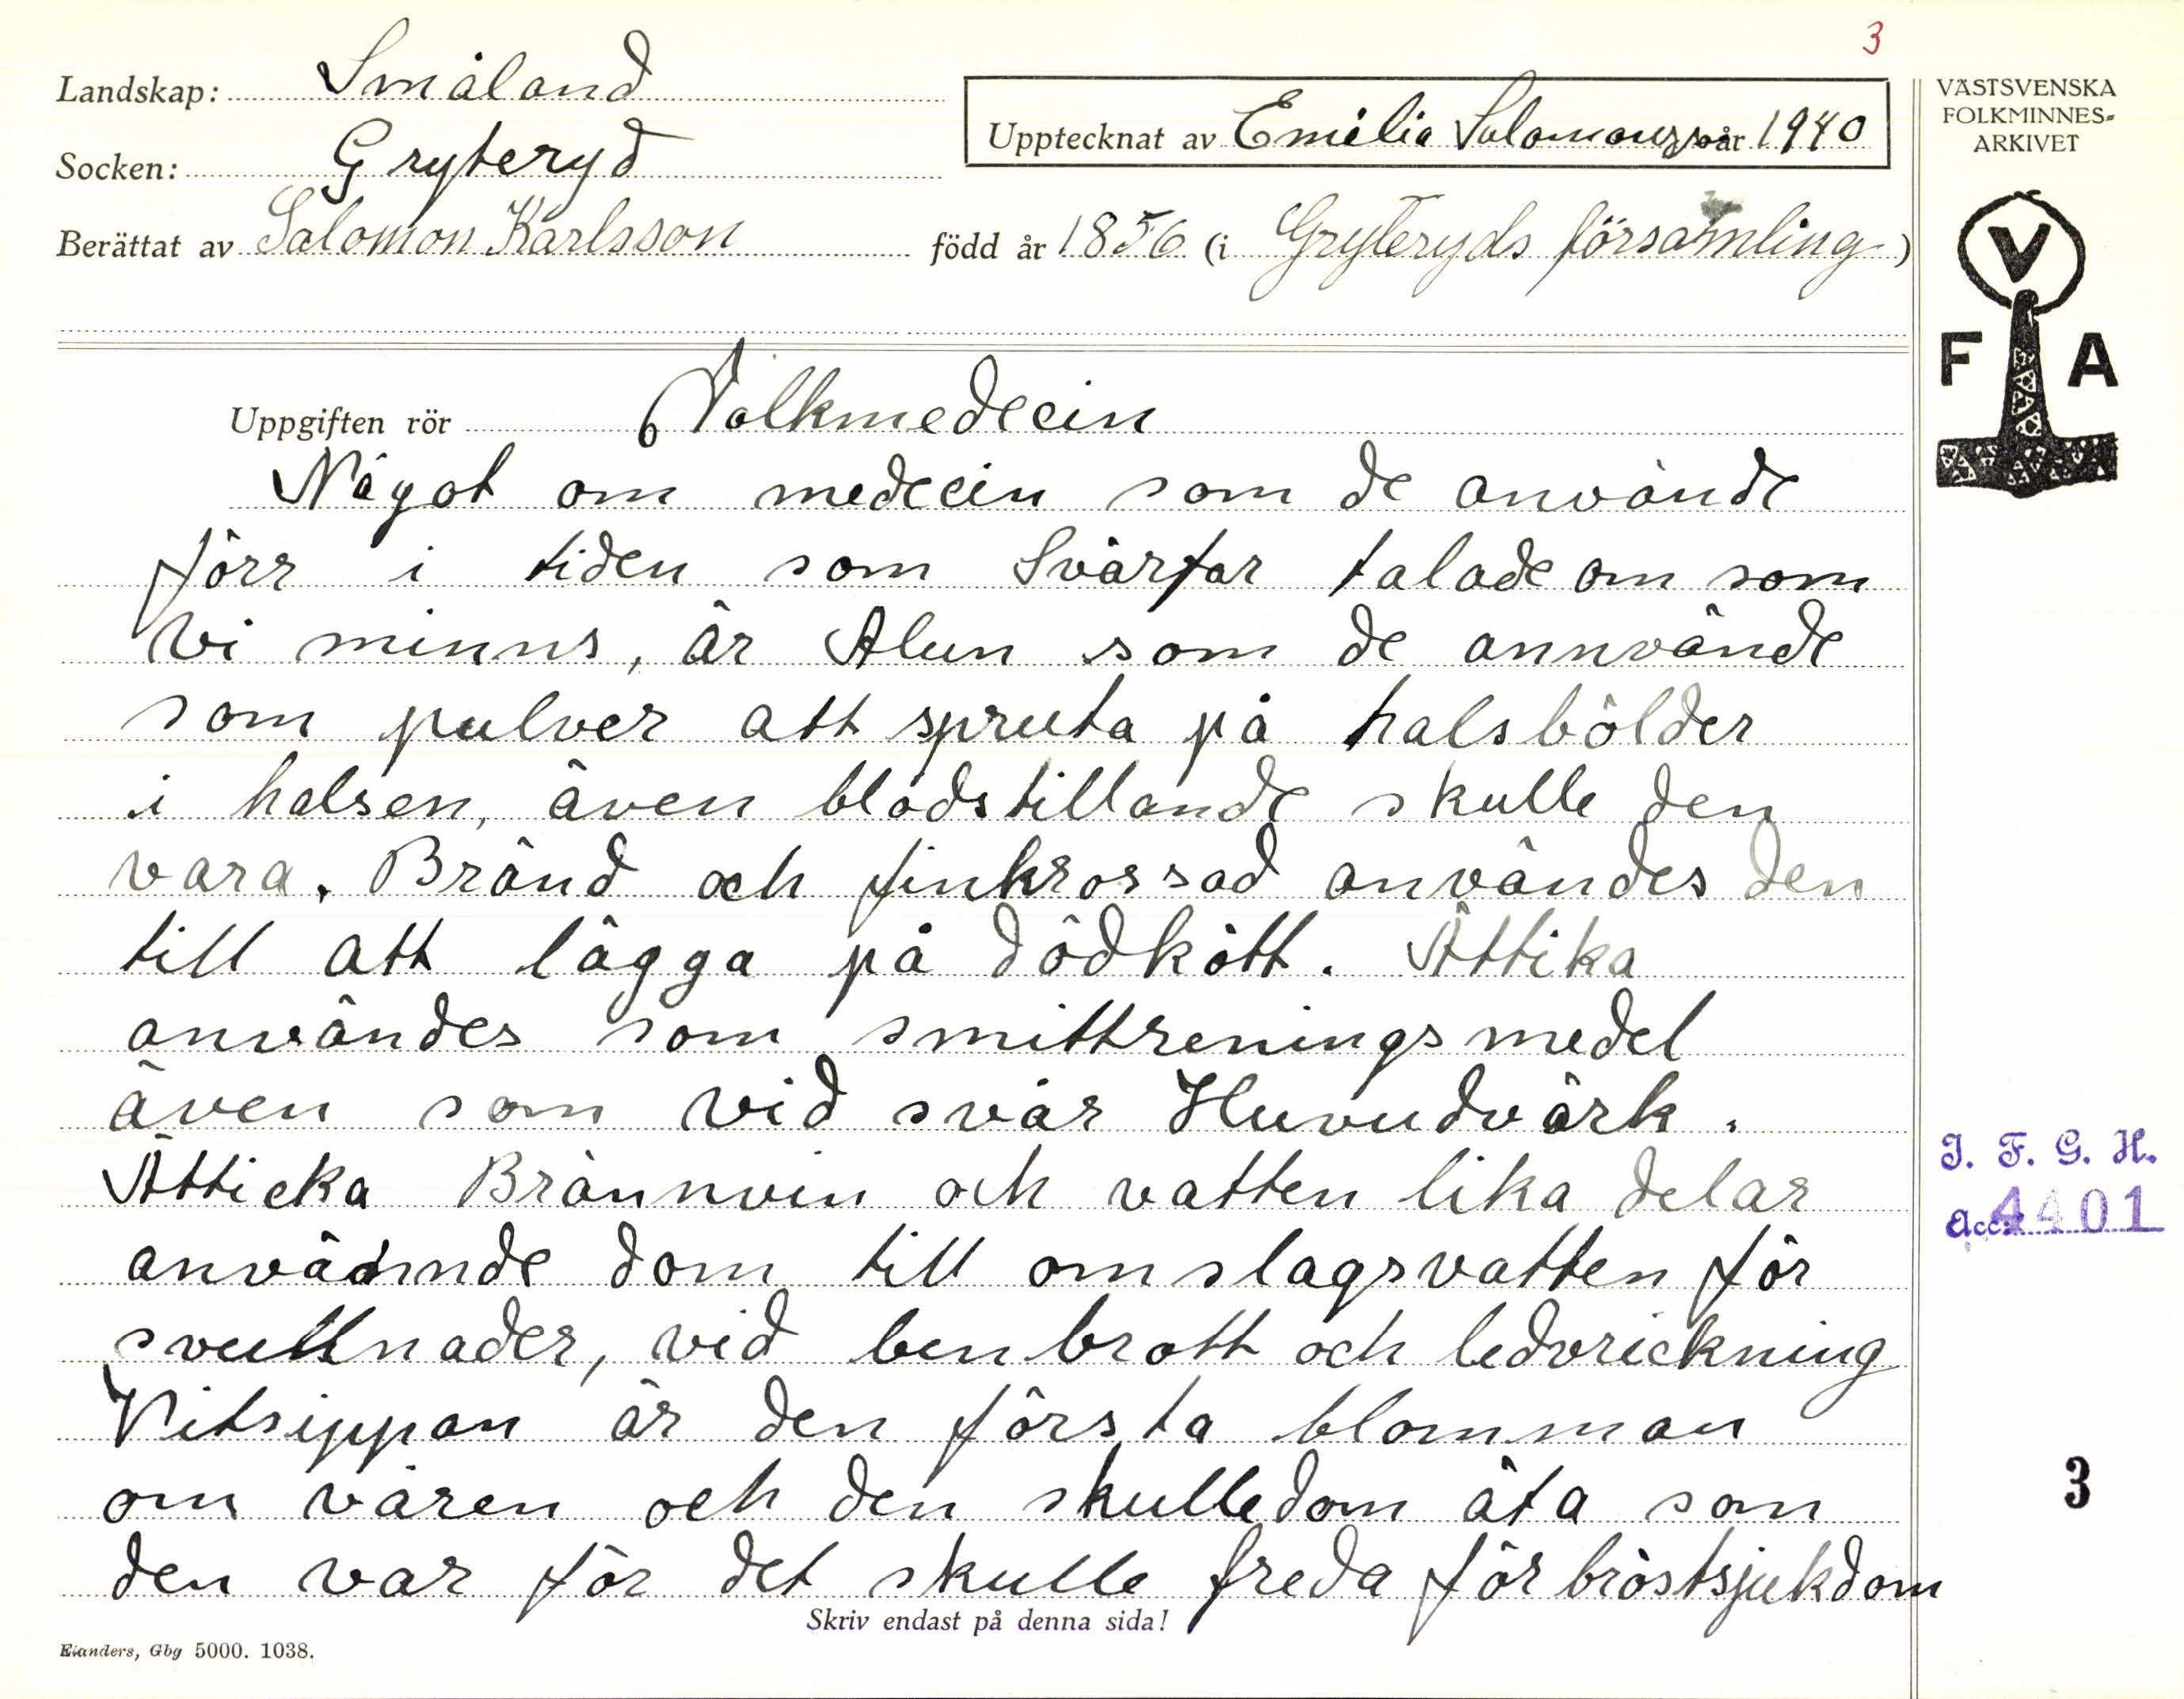 3
Landskap: Småland
Socken: Gryteryd
Upptecknat av Emilia Salomonsson år 1940
Berättat av Salomon Karlsson född år 1856 (i Gryteryds församling)
Uppgiften rör Folkmedecin
Något om medecin som de använde
förr i tiden som Svärfar talade om som
Vi minns, är Alun som de annvände
som pulver att spruta på halsbölder
i halsen, även blodstillande skulle den
vara. Bränd och finkrossad användes den
till att lägga på dödkött. Ättika
användes som smittreningsmedel
även som vid svår Huvudvärk.
Ätticka Brännvin och vatten lika delar
använnde dom till omslagsvatten för
svullnader, vid benbrott och ledvrickning
Vitsippan är den första blomman
om våren och den skulle dom äta som
den var för det skulle freda för bröstsjukdom
Skriv endast på denna sida!
Elanders, Gbg 5000. 1038.
VÄSTSVENSKA
FOLKMINNES=
ARKIVET
V
F A
I. F. G. H.
Acc. 4401
3